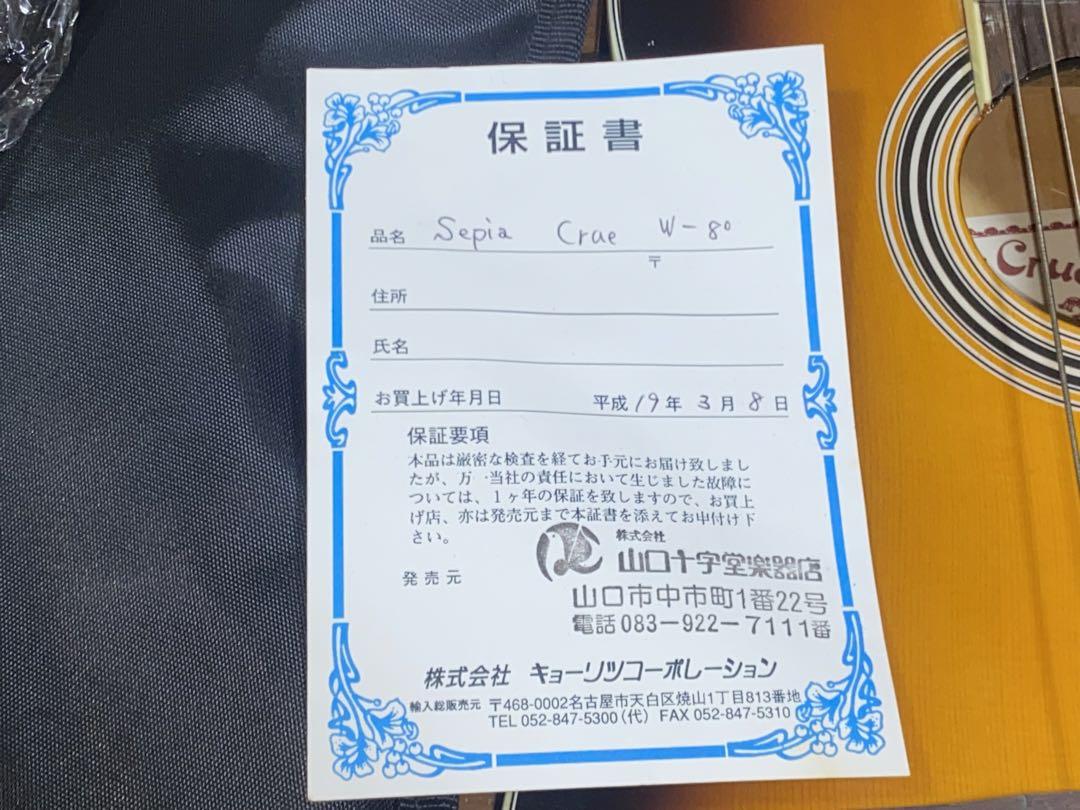 保証書
品名 Sepia Crue W-80
〒
住所
氏名
お買上げ年月日 平成19年3月8日
保証要項
本品は厳密な検査を経てお手元にお届け致しまし
たが、万一当社の責任において生じました故障に
ついては、1ヶ年の保証を致しますので、お買上
げ店、亦は発売元まで本証書を添えてお申付け下
さい。
株式会社
山口十字堂楽器店
発売元
山口市中市町1番22号
電話083-922-7111番
株式会社 キョーリツコーポレーション
輸入総販売元 〒468-0002名古屋市天白区焼山1丁目813番地
TEL 052-847-5300(代) FAX 052-847-5310
Crue